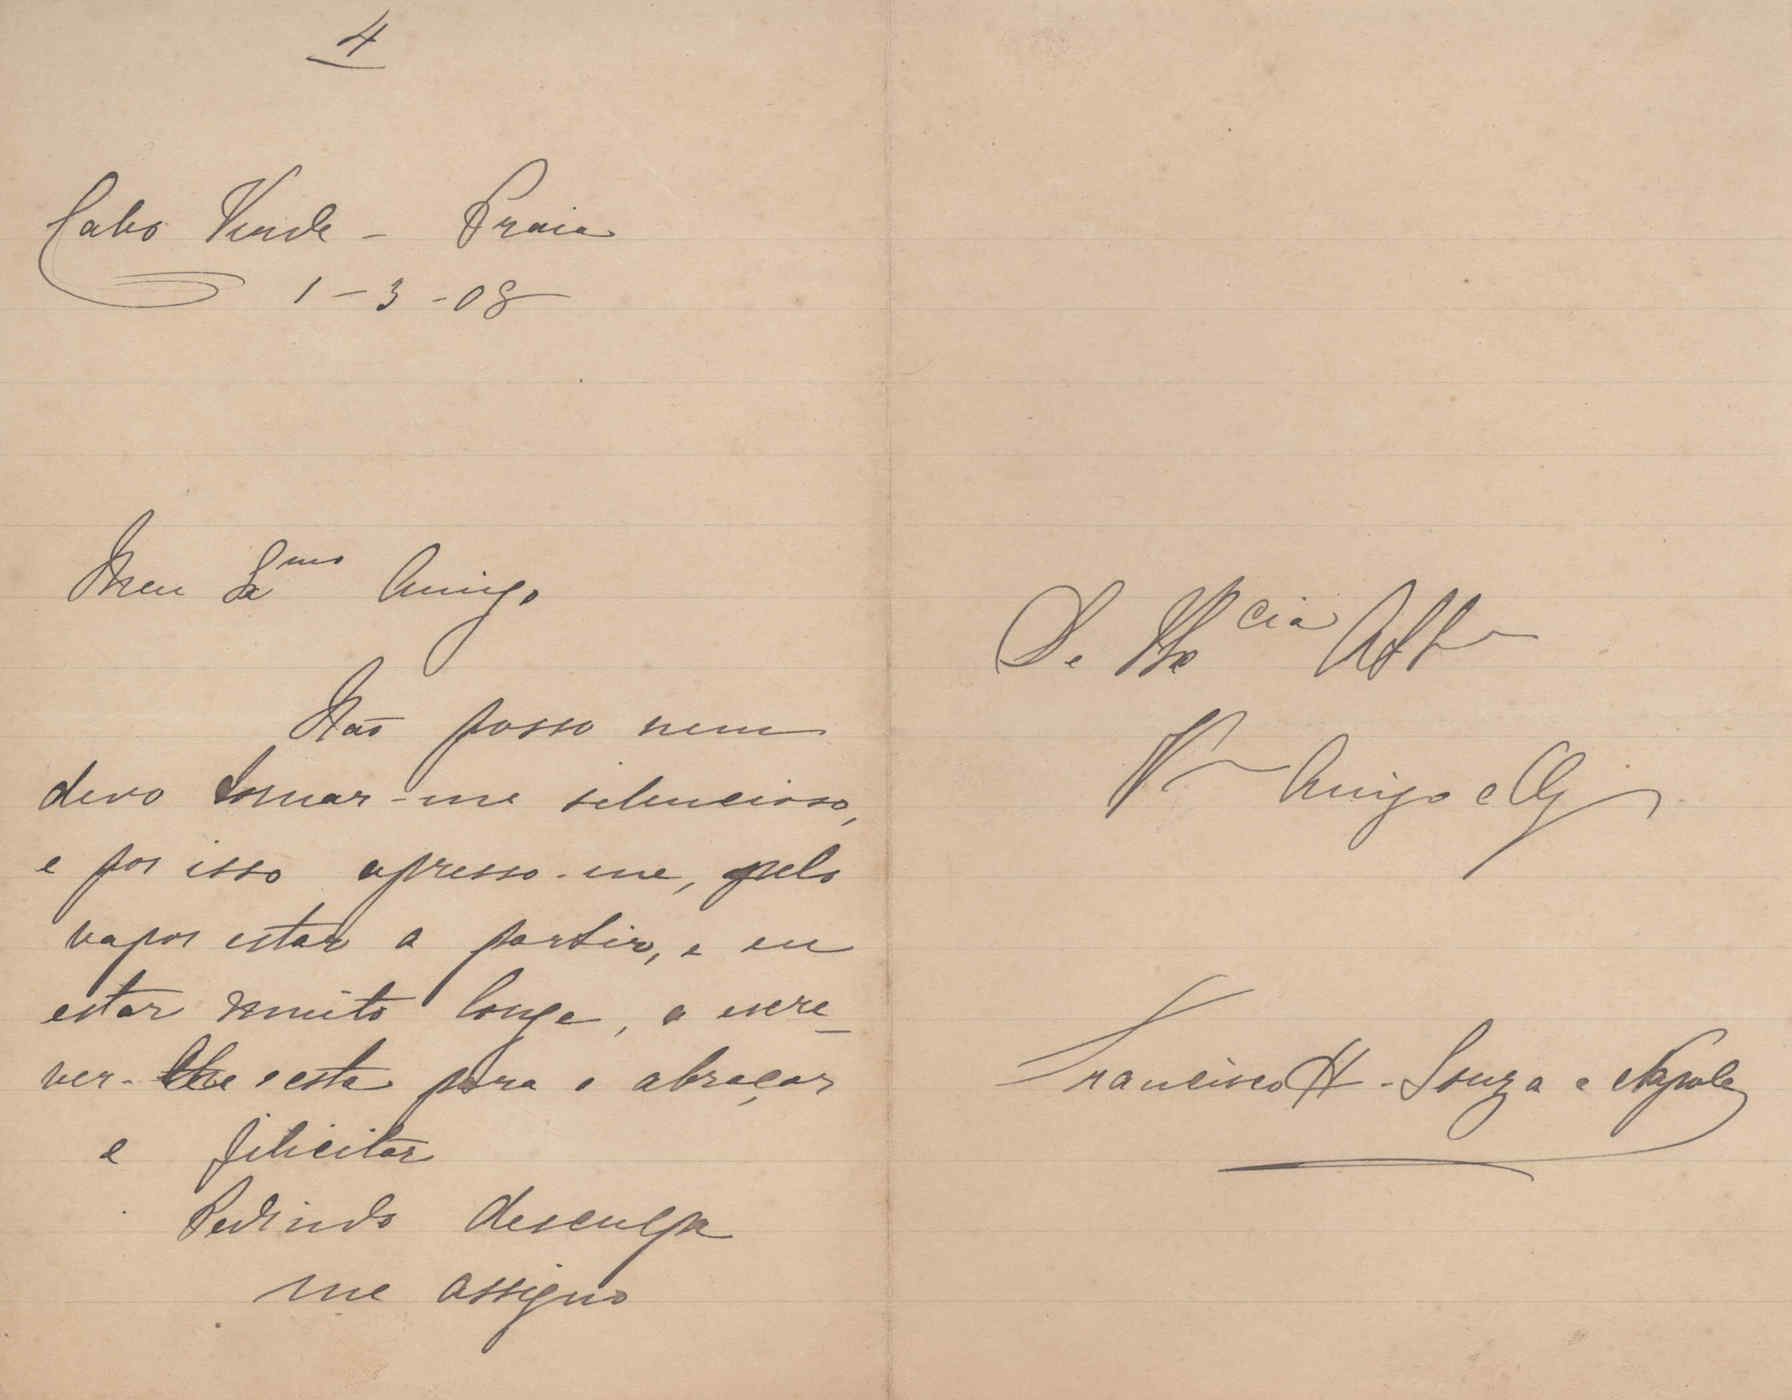 4
Cabo Verde - Praia
1-3-08
Meu Ex.mo Amigo
Não posso nem
devo tornar-me silencioso,
e por isso apresso-me, pelo
vapor estar a partir, e eu
estar muito longe, a escre-
ver-lhe esta para o abraçar
e felicitar
Pedindo desculpa
me assigno
De V.
Amigo e
Francisco H. Souza e Napoles